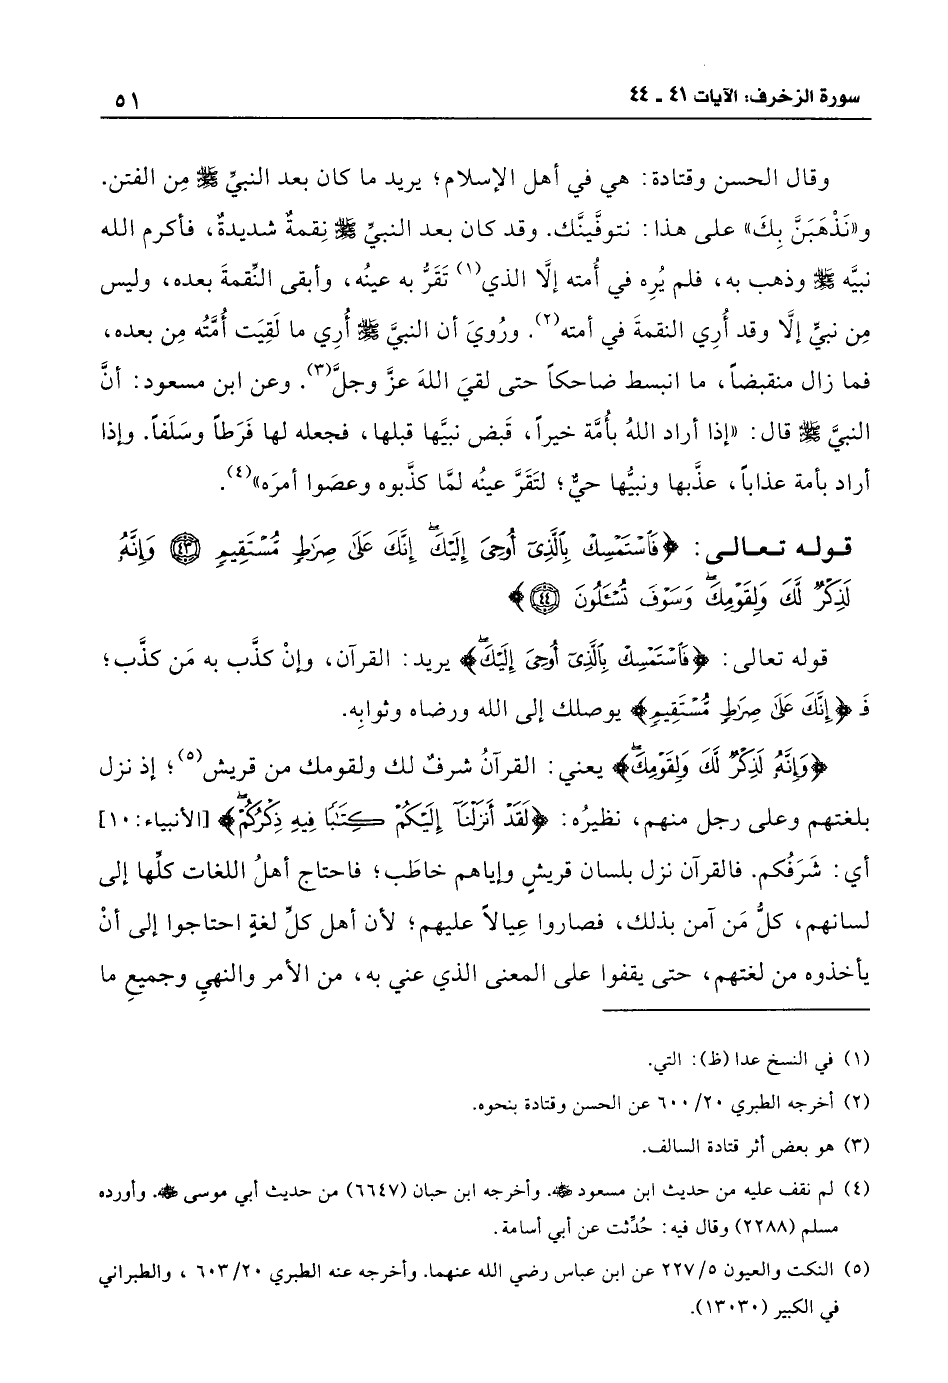 سورة الزخرف: الآيات ٤١ - ٤٤
٥١
وقال الحسن وقتادة: هي في أهل الإسلام؛ يريد ما كان بعد النبيِّ ﷺ مِن الفتن.
و«نَذْهَبَنَّ بِكَ» على هذا: نتوفَّينَّك. وقد كان بعد النبيِّ ﷺ نِقمةٌ شديدةٌ، فأكرم الله
نبيَّه ﷺ وذهب به، فلم يُره في أُمته إلَّا الذي(١) تَقَرُّ به عينُه، وأبقى النِّقمةَ بعده، وليس
مِن نبيٍّ إلَّا وقد أُري النقمةَ في أمته(٢). ورُويَ أن النبيَّ ﷺ أُري ما لَقِيَت أُمَّتُه مِن بعده،
فما زال منقبضاً، ما انبسط ضاحكاً حتى لقيَ اللهَ عزَّ وجلَّ(٣). وعن ابن مسعود: أنَّ
النبيَّ ﷺ قال: «إذا أراد اللهُ بأُمَّة خيراً، قَبض نبيَّها قبلها، فجعله لها فَرَطاً وسَلَفاً. وإذا
أراد بأمة عذاباً، عذَّبها ونبيُّها حيٌّ؛ لتَقَرَّ عينُه لمَّا كذَّبوه وعصَوا أمرَه»(٤).
قوله تعالى: ﴿فَٱسْتَمْسِكْ بِٱلَّذِىٓ أُوحِىَ إِلَيْكَ ۖ إِنَّكَ عَلَىٰ صِرَٰطٍ مُّسْتَقِيمٍ ٤٣ وَإِنَّهُۥ
لَذِكْرٌ لَّكَ وَلِقَوْمِكَ ۖ وَسَوْفَ تُسْـَٔلُونَ ٤٤﴾
قوله تعالى: ﴿فَٱسْتَمْسِكْ بِٱلَّذِىٓ أُوحِىَ إِلَيْكَ ۖ﴾ يريد: القرآن، وإنْ كذَّب به مَن كذَّب؛
فَـ ﴿إِنَّكَ عَلَىٰ صِرَٰطٍ مُّسْتَقِيمٍ﴾ يوصلك إلى الله ورضاه وثوابِه.
﴿وَإِنَّهُۥ لَذِكْرٌ لَّكَ وَلِقَوْمِكَ ۖ﴾ يعني: القرآنُ شرفٌ لك ولقومك من قريش(٥)؛ إذ نزل
بلغتهم وعلى رجل منهم، نظيرُه: ﴿لَقَدْ أَنزَلْنَآ إِلَيْكُمْ كِتَٰبًا فِيهِ ذِكْرُكُمْ ۖ﴾ [الأنبياء: ١٠]
أي: شَرَفُكم. فالقرآن نزل بلسان قريشٍ وإياهم خاطَب؛ فاحتاج أهلُ اللغات كلِّها إلى
لسانهم، كلُّ مَن آمن بذلك، فصاروا عِيالاً عليهم؛ لأن أهل كلِّ لغةٍ احتاجوا إلى أنْ
يأخذوه من لغتهم، حتى يقفوا على المعنى الذي عني به، من الأمر والنهيِ وجميعِ ما
(١) في النسخ عدا (ظ): التي.
(٢) أخرجه الطبري ٢٠/ ٦٠٠ عن الحسن وقتادة بنحوه.
(٣) هو بعض أثر قتادة السالف.
(٤) لم نقف عليه من حديث ابن مسعود ﷺ. وأخرجه ابن حبان (٦٦٤٧) من حديث أبي موسى ﷺ. وأورده
مسلم (٢٢٨٨) وقال فيه: حُدِّثت عن أبي أسامة.
(٥) النكت والعيون ٥/ ٢٢٧ عن ابن عباس رضي الله عنهما. وأخرجه عنه الطبري ٢٠/ ٦٠٣ ، والطبراني
في الكبير (١٣٠٣٠).